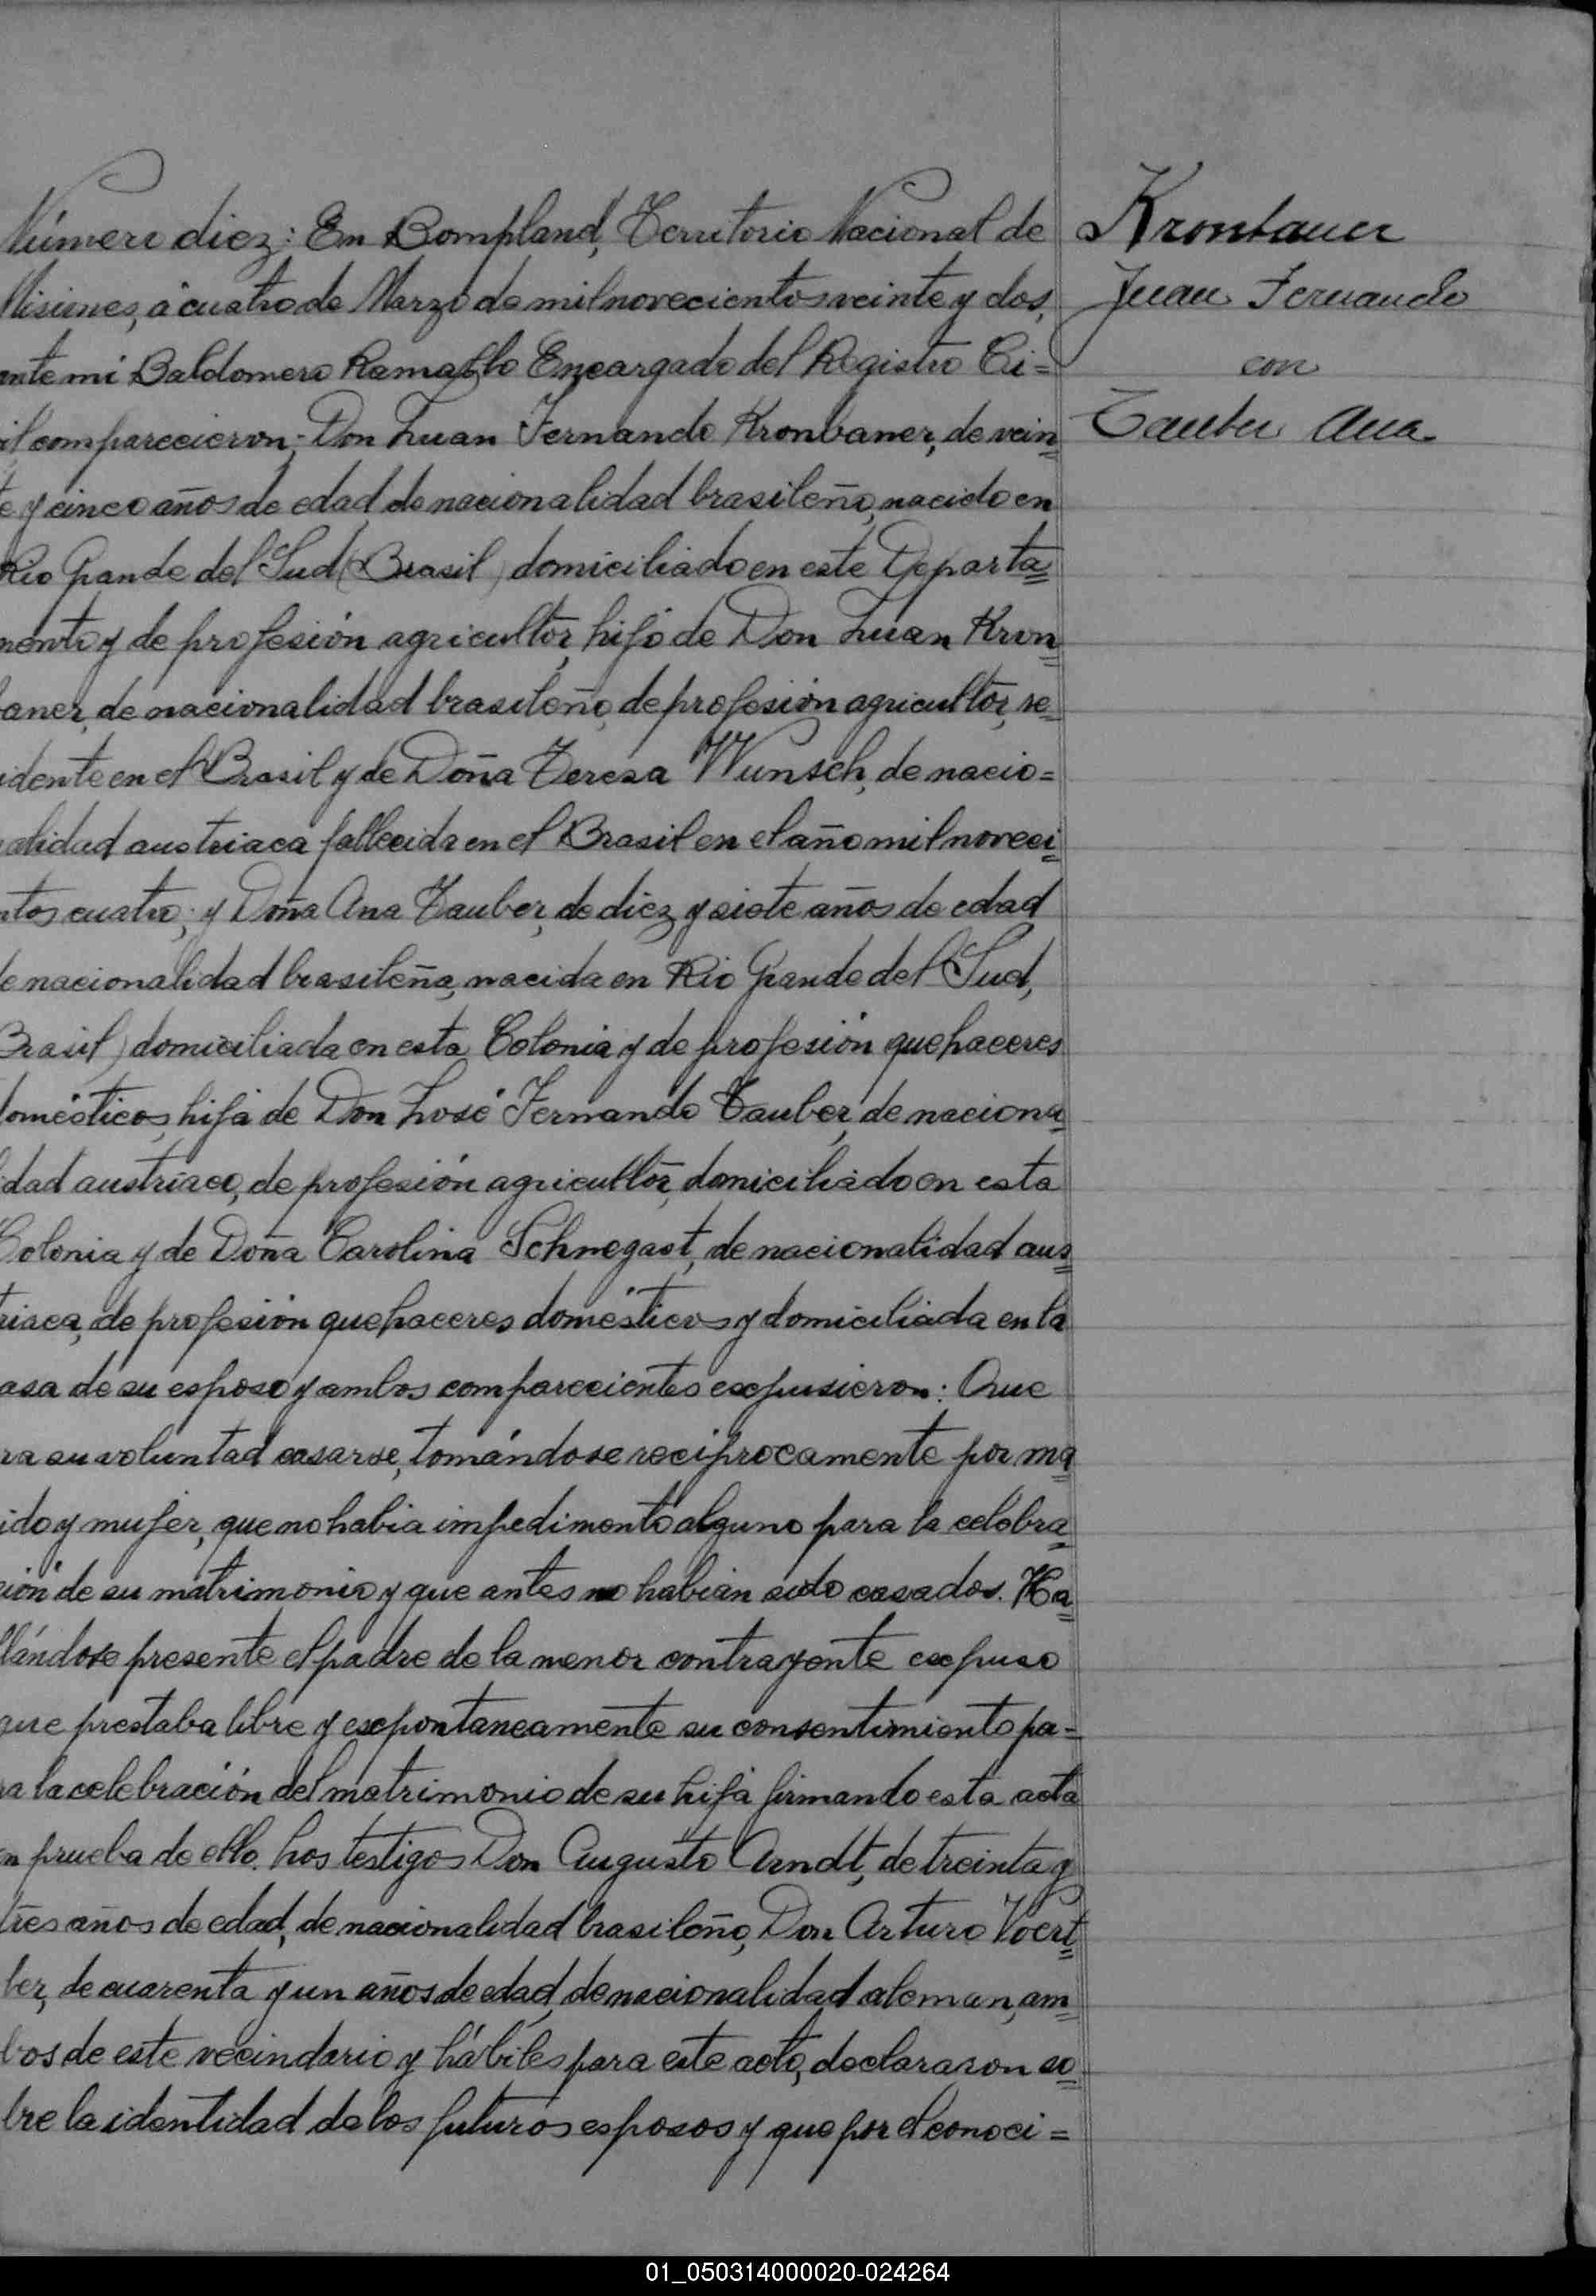 Número diez: En Bompland, Territorio Nacional de
Misiones, á cuatro de Marzo de mil novecientos veinte y dos,
ante mi Baldomero Ramallo Encargado del Registro Ci=
vil comparecieron: Don Juan Fernando Kronbaner, de vein
te y cinco años de edad, de nacionalidad brasileño, nacido en
Rio Grande del Sud (Brasil) domiciliado en este Departa
mento y de profesión agricultor, hijo de Don Juan Kron
baner, de nacionalidad brasileño, de profesión agricultor, re
idente en el Brasil y de Doña Teresa Wunsch, de nacio=
nalidad austriaca fallecida en el Brasil en el año mil noveci
ntos cuatro; y Doña Ana Tauber, de diez y siete años de edad
de nacionalidad brasileña, nacida en Rio Grande del Sud,
Brasil) domiciliada en esta Colonia y de profesión quehaceres
domésticos, hija de Don José Fernando Tauber, de naciona
lidad austriaco, de profesión agricultor, domiciliado en esta
Colonia y de Doña Carolina Schnegast, de nacionalidad aus
triaca, de profesión quehaceres domésticos y domiciliada en la
casa de su esposo y ambos comparecientes expusieron: Que
era su voluntad casarse, tomándose reciprocamente por ma
rido y mujer, que no habia impedimento alguno para la celebra
ción de su matrimonio y que antes no habian sido casados. Ha
llándose presente el padre de la menor contrayente expuso
que prestaba libre y expontaneamente su consentimiento pa=
ra la celebración del matrimonio de su hija firmando esta acta
en prueba de ello. Los testigos Don Augusto Arndt, de treinta y
tres años de edad, de nacionalidad brasileño, Don Arturo Voert
ler, de cuarenta y un años de edad, de nacionalidad aleman, am
bos de este vecindario y hábiles para este acto, declararon so
bre la identidad de los futuros esposos y que por el conoci=
Kronbauer
Juan Fernando
con
Tauber Ana
01_050314000020-024264